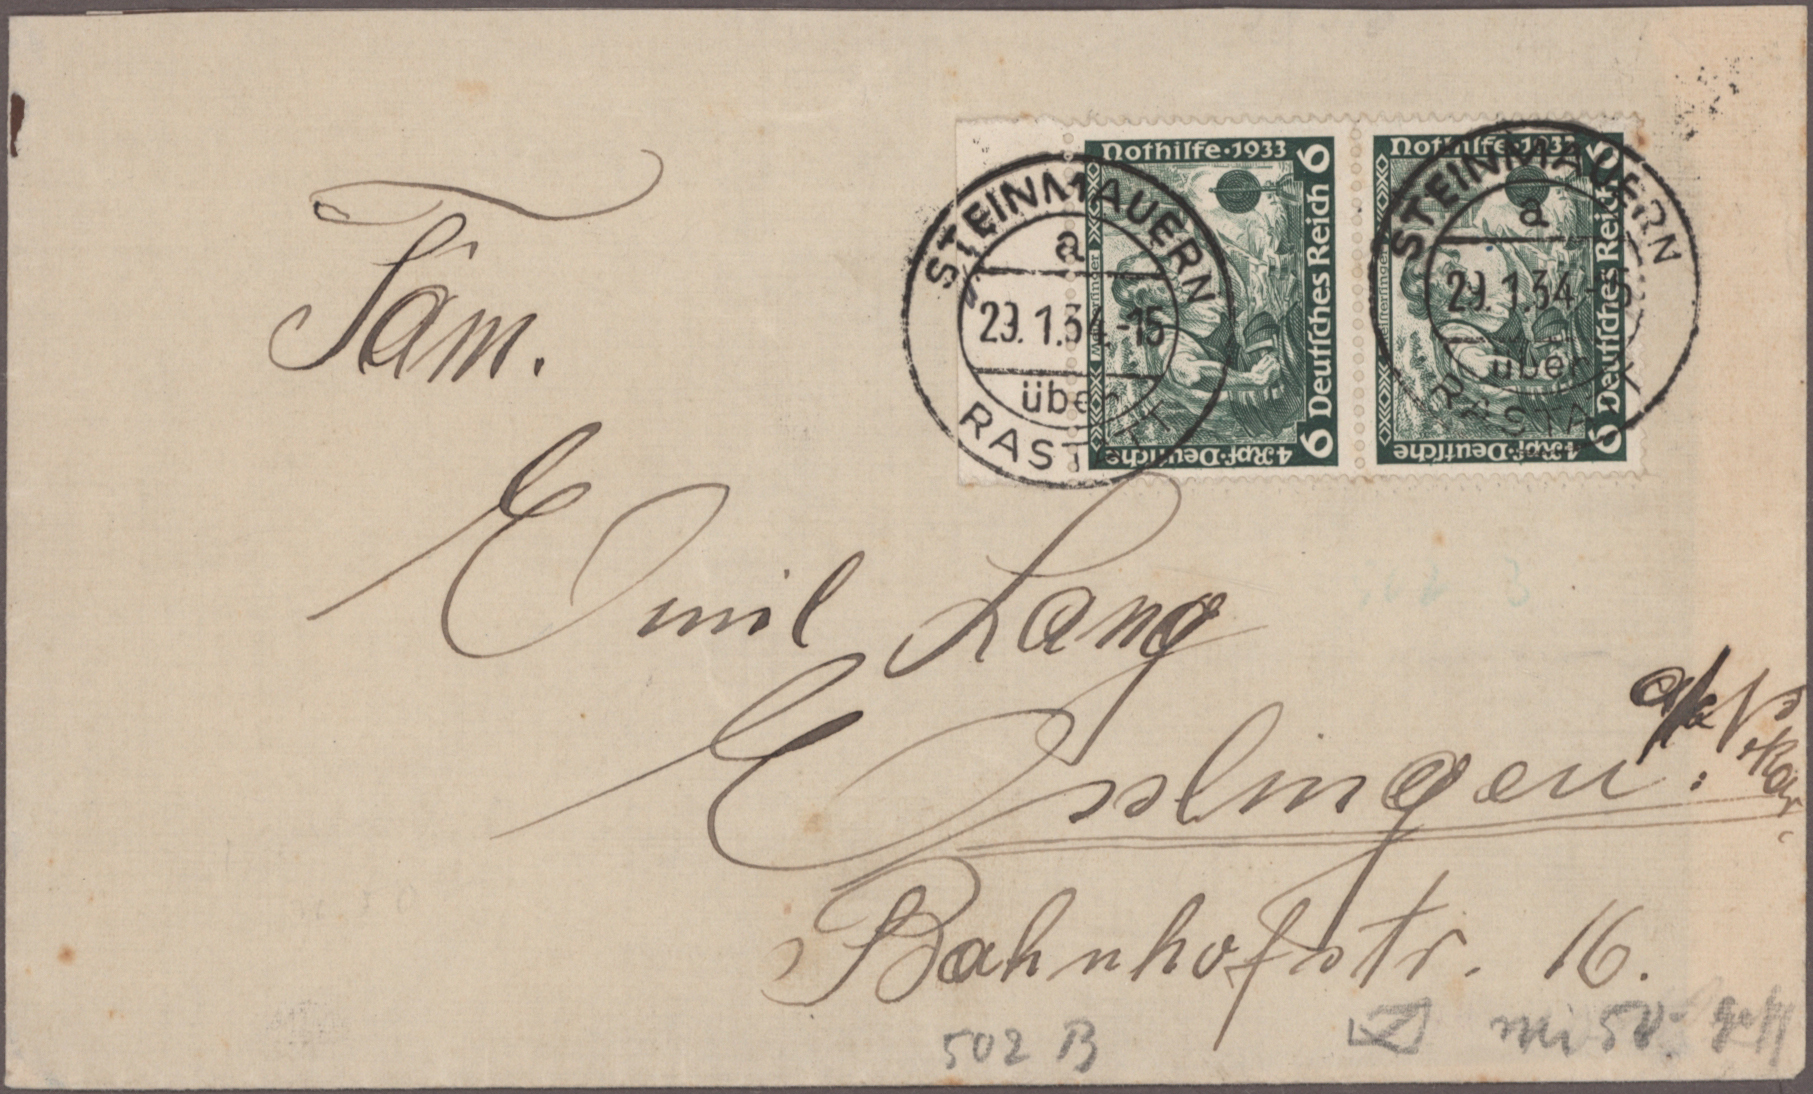 Nothilfe·1933
6 Deutsches Reich 6
4 Rpf·Deutsche
Nothilfe·1933
6 Deutsches Reich 6
4 Rpf·Deutsche
STEINMAUERN
a
29.1.34.-15
über
RASTATT
STEINMAUERN
a
29.1.34.-15
über
RASTATT
Fam.
Emil Lang
Esslingen.
Bahnhofstr. 16.
502 B
Mi 50.